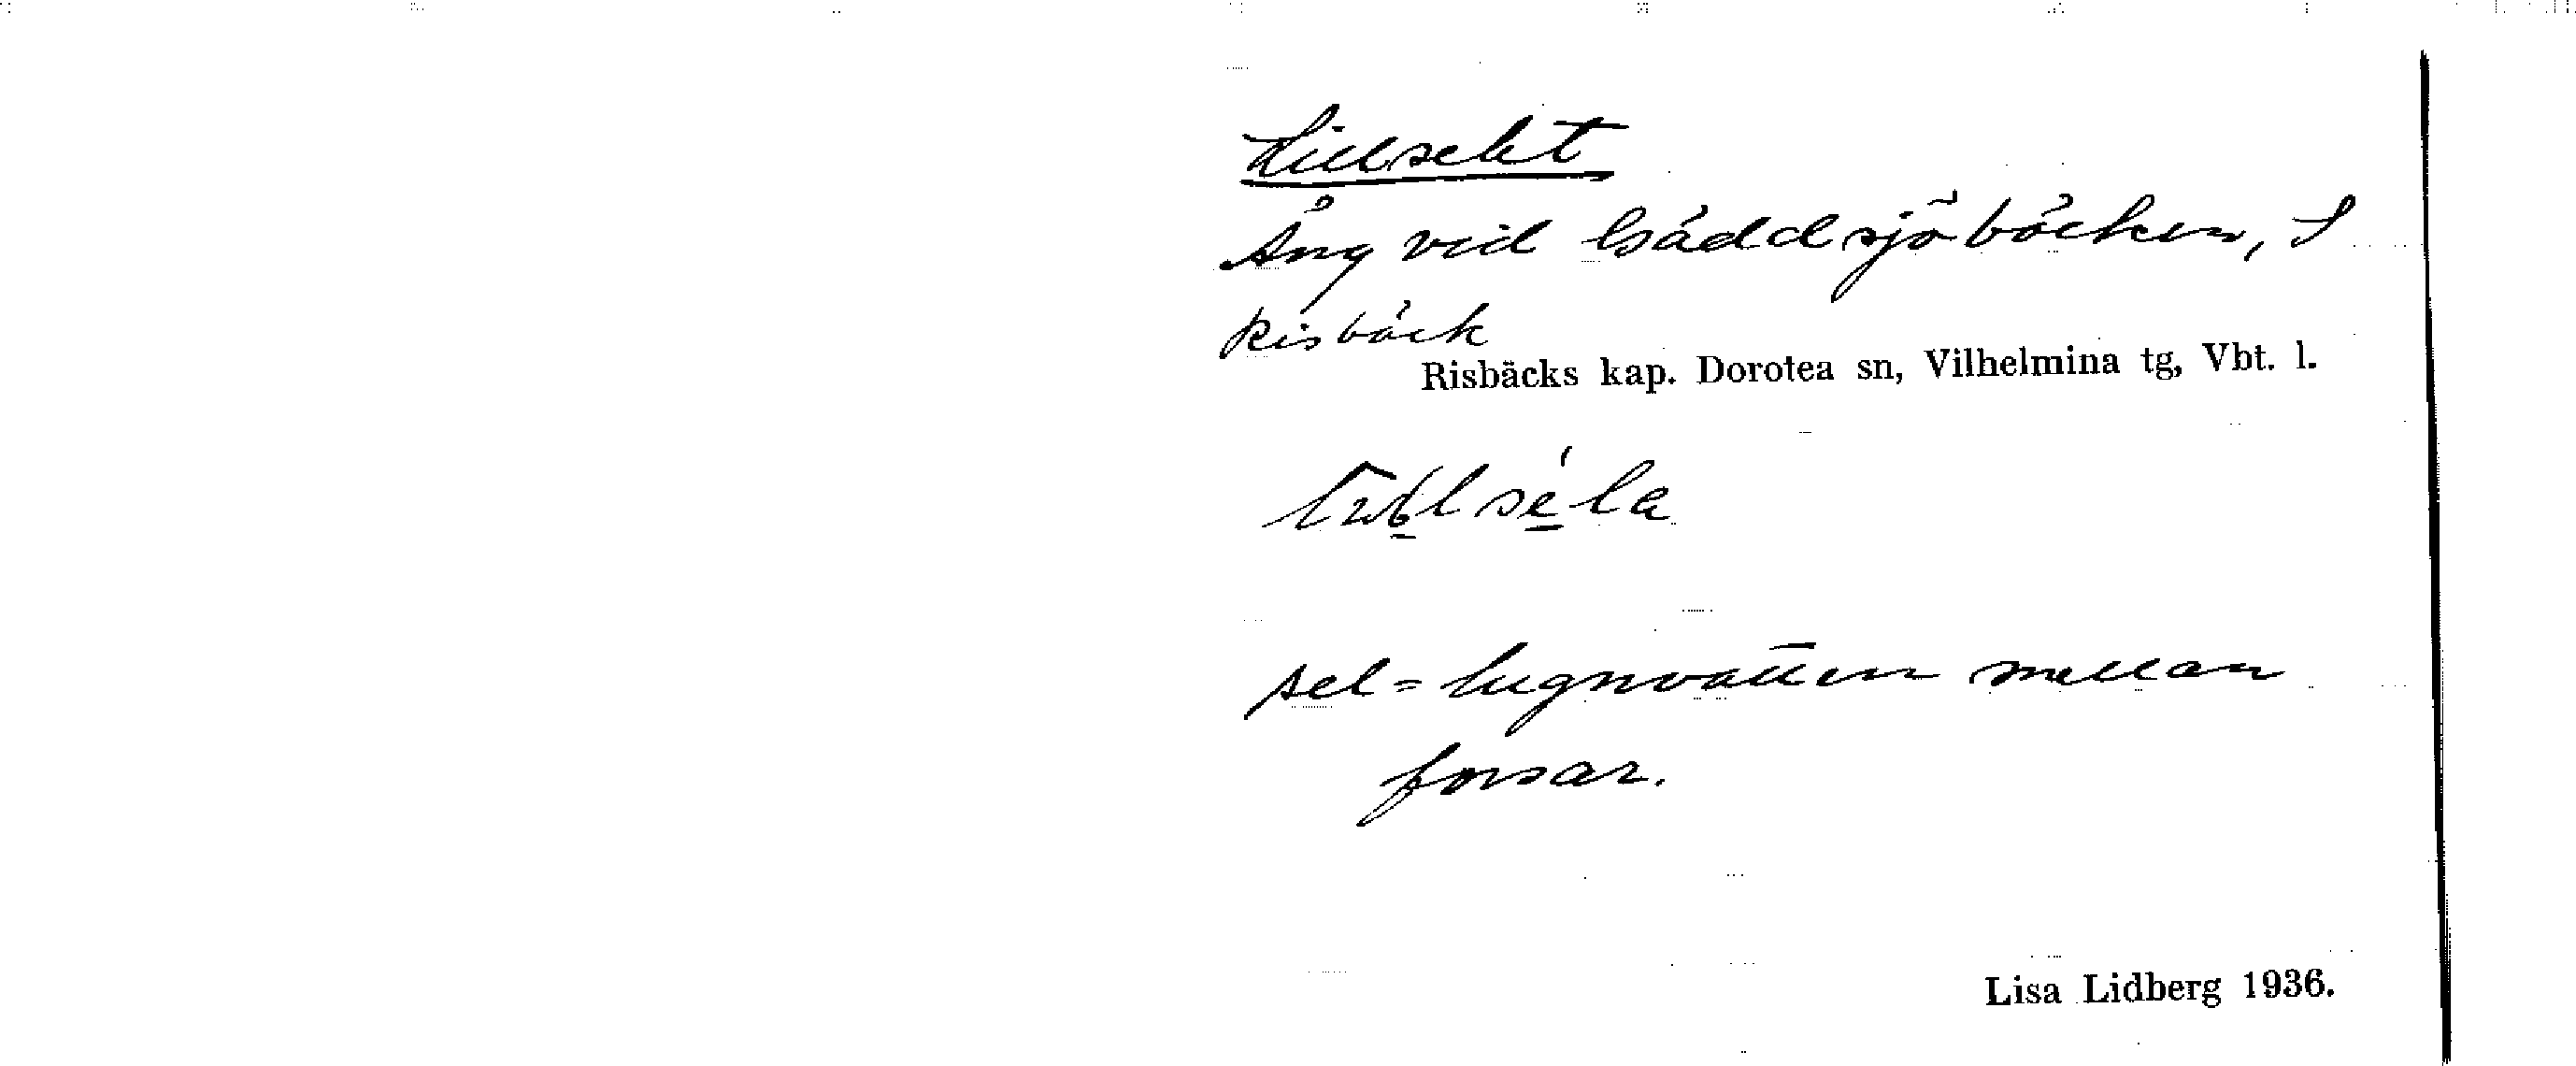 Lillselet
Äng vid Gäddsjöbäcken, S
Risbäck
Risbäcks kap. Dorotea sn, Vilhelmina tg, Vbt. l.
sel = lugnvatten mellan
forsar.
Lisa Lidberg 1936.